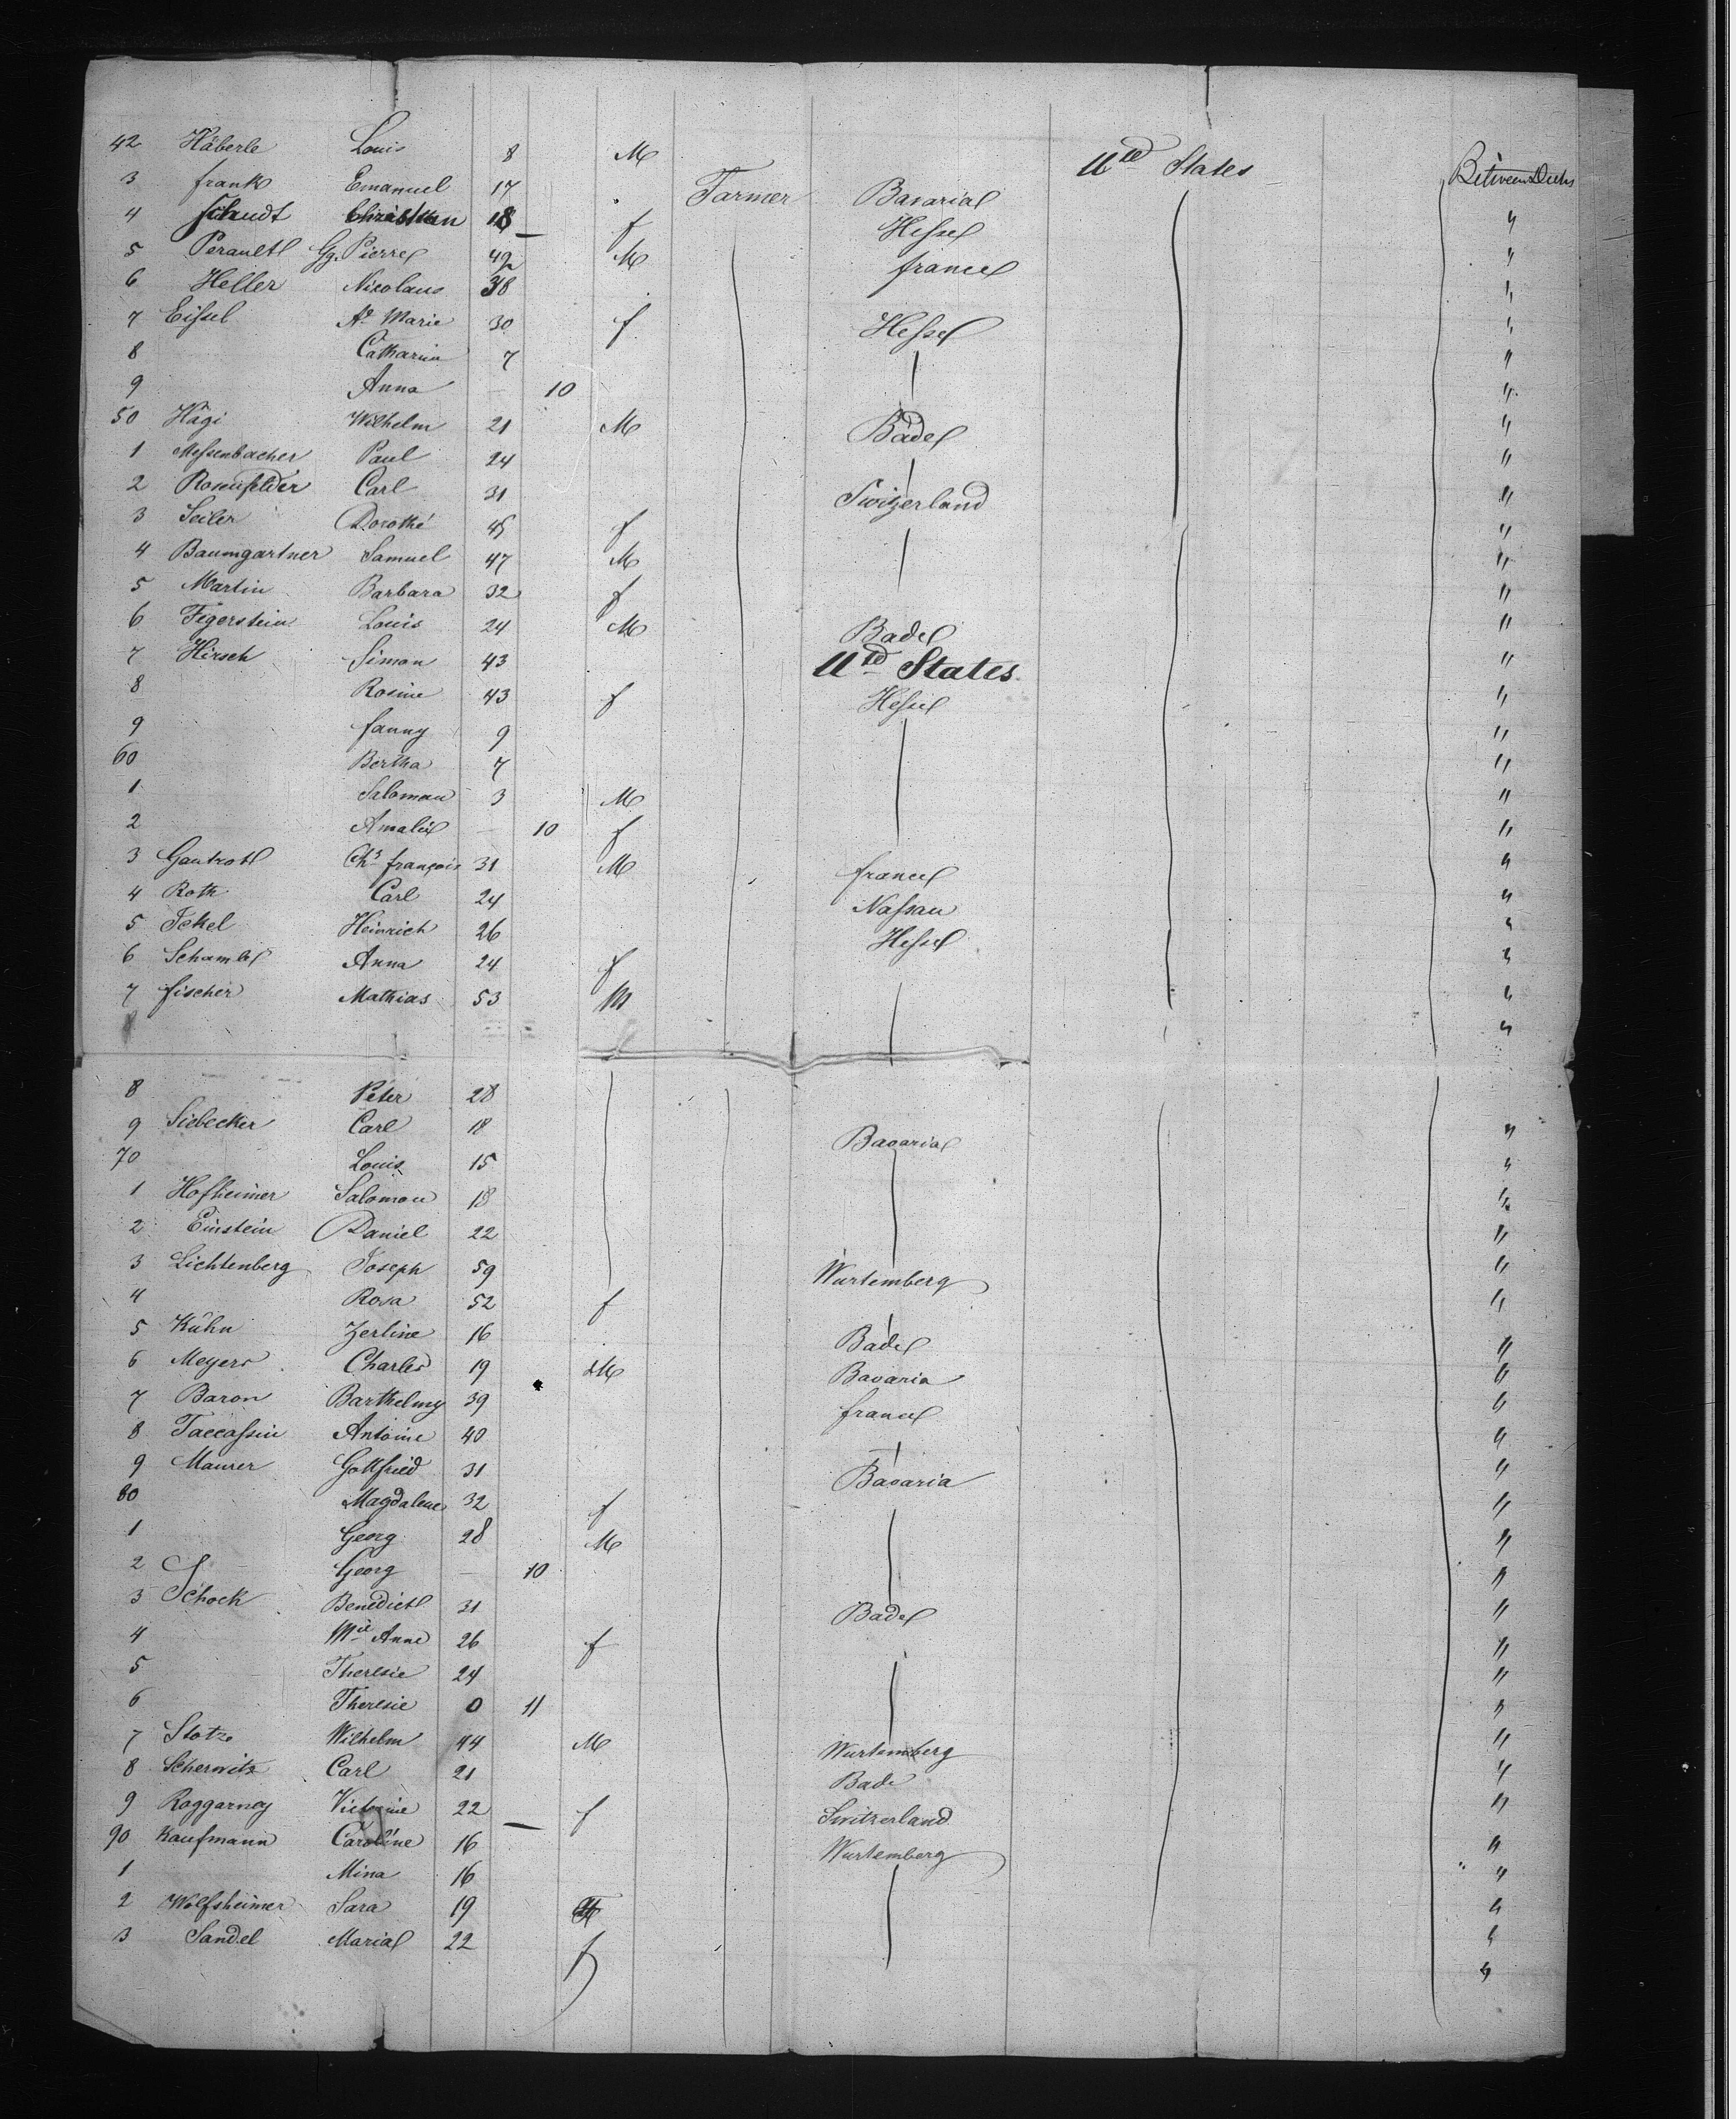 42 Häberle Louis 8 M Utd States Between Decks
3 frank Emanuel 17 Farmer Bavaria "
4 Schudt Christian 18 f Hesse "
5 Perault Gg. Pierre 42 M france "
6 Heller Nicolaus 38 "
7 Eissel Ae Marie 30 f Hesse "
8 Catharin 7 "
9 Anna — 10 "
50 Hägi Wilhelm 21 M Bade "
1 Messenbacher Paul 24 "
2 Rosenfelder Carl 31 Switzerland "
3 Seiler Dorothé 45 f "
4 Baumgartner Samuel 47 M "
5 Martin Barbara 32 f "
6 Figerstein Louis 24 M Bade "
7 Hirsch Simon 43 Utd States "
8 Rosine 43 f Hesse "
9 fanny 9 "
60 Bertha 7 "
1 Saloman 3 M "
2 Amalie — 10 f "
3 Gautrot Chs françois 31 M france "
4 Roth Carl 24 Nassau "
5 Jekel Heinrich 26 Hesse "
6 Schamle Anna 24 f "
7 fischer Mathias 53 M "
8 Peter 28
9 Siebecker Carl 18 Bavaria "
70 Louis 15 "
1 Hofheimer Salomon 18 "
2 Einstein Daniel 22 "
3 Lichtenberg Joseph 59 Wurtemberg "
4 Rosa 52 f "
5 Kühn Zerline 16 Bade "
6 Meyers Charles 19 M Bavaria "
7 Baron Barthelmy 39 france "
8 Taccassin Antoine 40 "
9 Maurer Gottfried 31 Bavaria "
80 Magdalene 32 f "
1 Georg 28 M "
2 Georg — 10 "
3 Schock Benedict 31 Bade "
4 Mie Anne 26 f "
5 Theresie 24 "
6 Theresie 0 11 "
7 Stotz Wilhelm 44 M Wurtemberg "
8 Scherwitz Carl 21 Bade "
9 Roggarney Victorine 22 f Switzerland "
90 Kaufmann Caroline 16 Wurtemberg "
1 Mina 16 "
2 Wolfsheimer Sara 19 "
3 Sandel Maria 22 f "